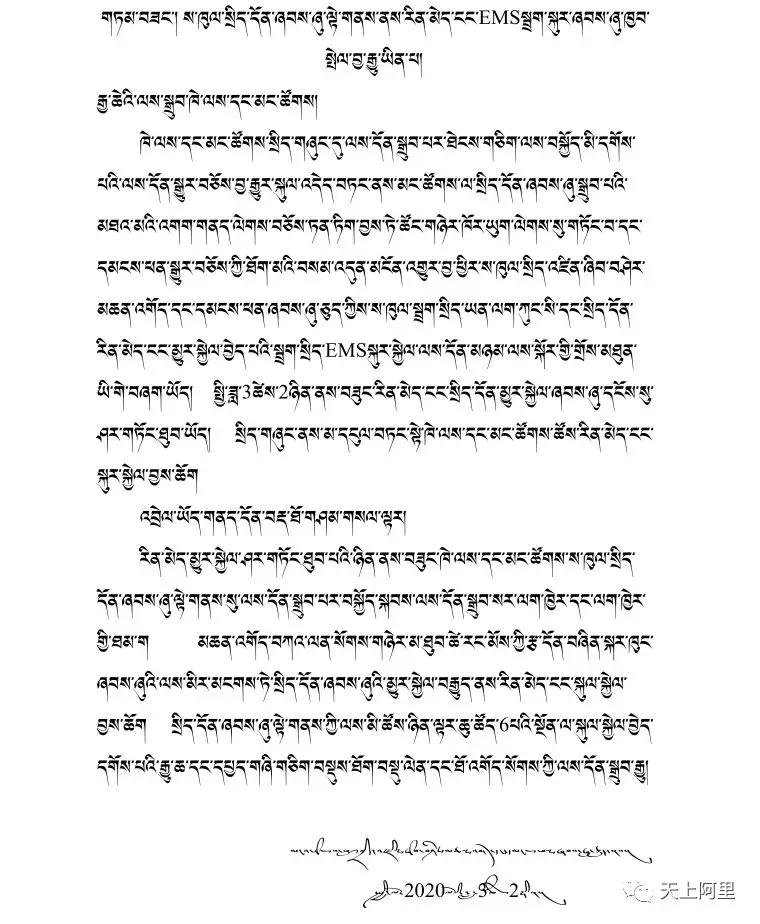 གཏམ་བཟང་། ས་ཁུལ་སྲིད་དོན་ཞབས་ཞུ་ལྟེ་གནས་ནས་རིན་མེད་ངང་EMSསྦྲག་སྐུར་ཞབས་ཞུ་ཁྱབ་
སྤེལ་བྱ་རྒྱུ་ཡིན་པ།
རྒྱ་ཆེའི་ལས་སྒྲུབ་ཁེ་ལས་དང་མང་ཚོགས།
ཁེ་ལས་དང་མང་ཚོགས་སྲིད་གཞུང་དུ་ལས་དོན་སྒྲུབ་པར་ཐེངས་གཅིག་ལས་བསྐྱོད་མི་དགོས་
པའི་ལས་དོན་སྒྱུར་བཅོས་བྱ་རྒྱུར་སྐུལ་འདེད་བཏང་ནས་མང་ཚོགས་ལ་སྲིད་དོན་ཞབས་ཞུ་སྒྲུབ་པའི་
མཐའ་མའི་འགག་གནད་ལེགས་བཅོས་ཏན་ཏིག་བྱས་ཏེ་ཚོང་གཉེར་ཁོར་ཡུག་ལེགས་སུ་གཏོང་བ་དང་
དམངས་ཕན་སྒྱུར་བཅོས་ཀྱི་ཐོག་མའི་བསམ་འདུན་མངོན་འགྱུར་བྱ་ཕྱིར་ས་ཁུལ་སྲིད་འཛིན་ཞིབ་བཤེར་
མཆན་འགོད་དང་དམངས་ཕན་ཞབས་ཞུ་ཅུད་ཀྱིས་ས་ཁུལ་སྦྲག་སྲིད་ཡན་ལག་ཀུང་སི་དང་སྲིད་དོན་
རིན་མེད་ངང་མྱུར་སྐྱེལ་བྱེད་པའི་སྦྲག་སྲིད་EMSསྐུར་སྐྱེལ་ལས་དོན་མཉམ་ལས་སྐོར་གྱི་གྲོས་མཐུན་
ཡི་གེ་བཞག་ཡོད། སྤྱི་ཟླ་3ཚེས་2ཉིན་ནས་བཟུང་རིན་མེད་ངང་སྲིད་དོན་མྱུར་སྐྱེལ་ཞབས་ཞུ་དངོས་སུ་
ཤར་གཏོང་ཐུབ་ཡོད། སྲིད་གཞུང་ནས་མ་དངུལ་བཏང་སྟེ་ཁེ་ལས་དང་མང་ཚོགས་ཚོས་རིན་མེད་ངང་
སྐུར་སྐྱེལ་བྱས་ཆོག
འབྲེལ་ཡོད་གནད་དོན་བརྡ་ཐོ་གཤམ་གསལ་ལྟར།
རིན་མེད་མྱུར་སྐྱེལ་ཤར་གཏོང་ཐུབ་པའི་ཉིན་ནས་བཟུང་ཁེ་ལས་དང་མང་ཚོགས་ས་ཁུལ་སྲིད་
དོན་ཞབས་ཞུ་ལྟེ་གནས་སུ་ལས་དོན་སྒྲུབ་པར་བསྐྱོད་སྐབས་ལས་དོན་སྒྲུབ་སར་ལག་ཁྱེར་དང་ལག་ཁྱེར་
གྱི་ཐམ་ག མཆན་འགོད་བཀའ་ལན་སོགས་གཉེར་མ་ཐུབ་ཚེ་རང་མོས་ཀྱི་རྩ་དོན་བཞིན་སྐར་ཁུང་
ཞབས་ཞུའི་ལས་མིར་མངགས་ཏེ་སྲིད་དོན་ཞབས་ཞུའི་མྱུར་སྐྱེལ་བརྒྱུད་ནས་རིན་མེད་ངང་སྐུལ་སྐྱེལ་
བྱས་ཆོག སྲིད་དོན་ཞབས་ཞུ་ལྟེ་གནས་ཀྱི་ལས་མི་ཚོས་ཉིན་ལྟར་ཆུ་ཚོད་6པའི་སྔོན་ལ་སྐུལ་སྐྱེལ་བྱེད་
དགོས་པའི་རྒྱུ་ཆ་དང་དཔྱད་གཞི་གཅིག་བསྡུས་ཐོག་བསྡུ་ལེན་དང་ཐོ་འགོད་སོགས་ཀྱི་ལས་དོན་སྒྲུབ་རྒྱུ།
2020 3 2
天上阿里